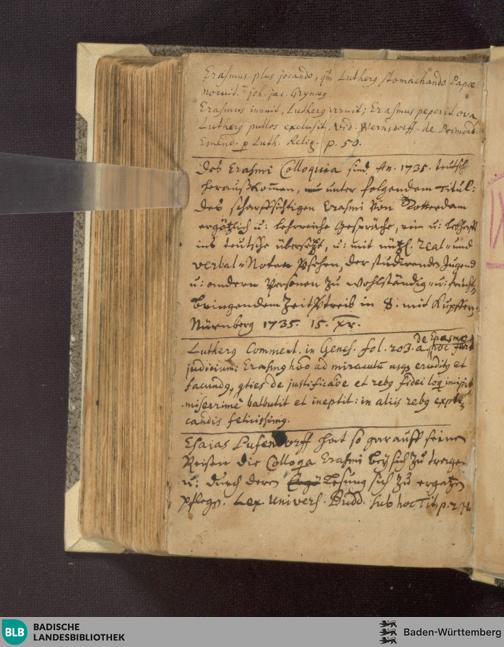 Erasmus plus jocando, qm Lutherg stomachando Papæ
nocuit. joh. jac. Gryneg
Erasmus innuit, Lutherg irruit; Erasmus peperit ova
Lutherg pullos exclusit, vid. Wernsdorff. de Primord.
Emend. p Luth. Relig. p. 50.
Des Erasmi Colloquia sind An. 1735. teutsch
heraus kom̄en, unter folgendem Titul:
Des scharffsichtigen Erasmi von Rotterdam
ergötzlich u: lehrreiche Gespräche,
ins teutsche übersetzt, u: mit nützl. real- und
verbal-Noten versehen, der studirenden Jugend
u: andern Personen zu wohlständig- u:
bringendem Zeitvertreib in 8: mit Kupffern
Nürnberg 1735. 15. xr.
Lutherg Comment. in Genes. fol. 203. a. de Erasmo hoc fert
judicium: Erasmg hoo ad miraculū usq erudity et
facundg, qties de justificaōe et rebg fidei loq incipit
miserrime balbutit et ineptit: in aliis rebg expli-
candis felicissimg.
Esaias Pufendorff hat so gar auff seinen
Reisen die Colloqa Erasmi bey sich zu tragen
u: durch deren Lesung sich zu ergötzen
pflegen. Lex Univers. Budd. sub hoc Tit. p.
BLB
BADISCHE
LANDESBIBLIOTHEK
Baden-Württemberg